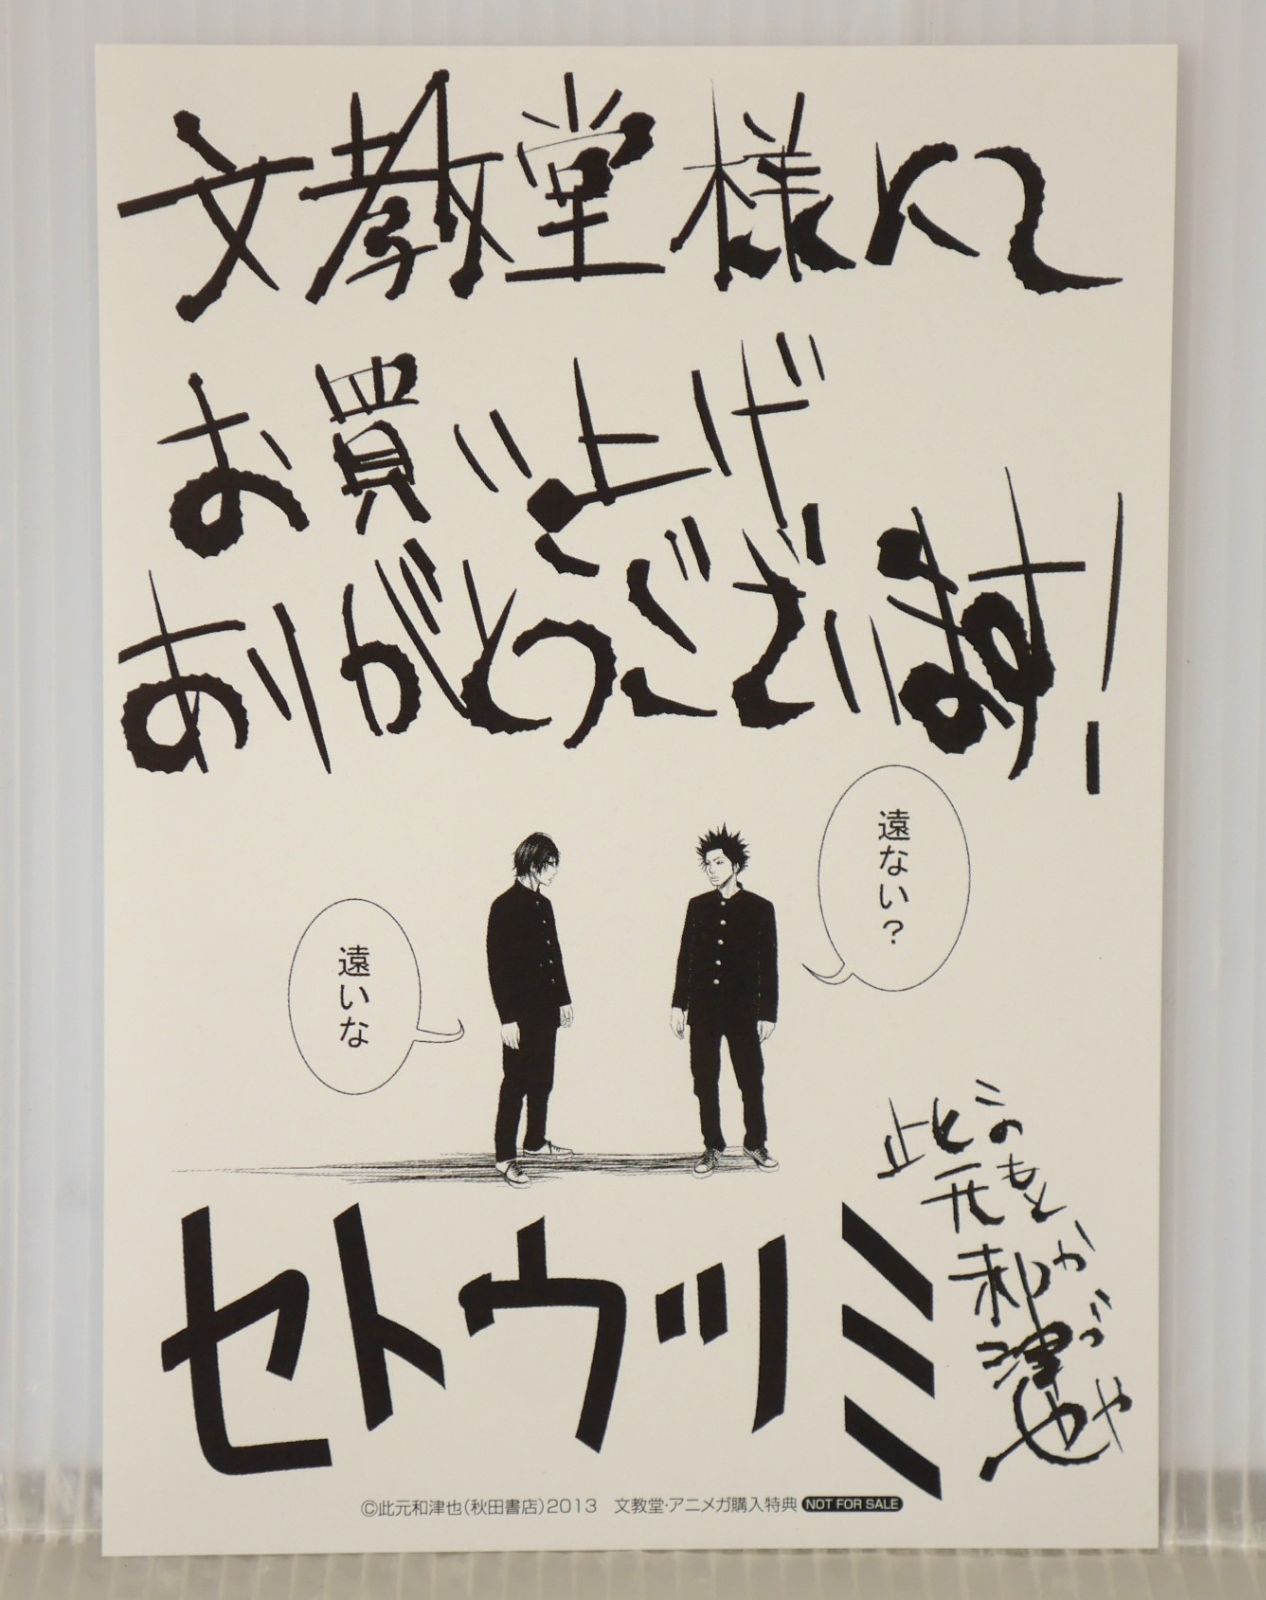 文教堂様にて
お買い上げ
ありがとうございます!
遠ない?
遠いな
セトウツミ
此元和津也
このもとかづや
©此元和津也(秋田書店)2013 文教堂・アニメガ購入特典 NOT FOR SALE